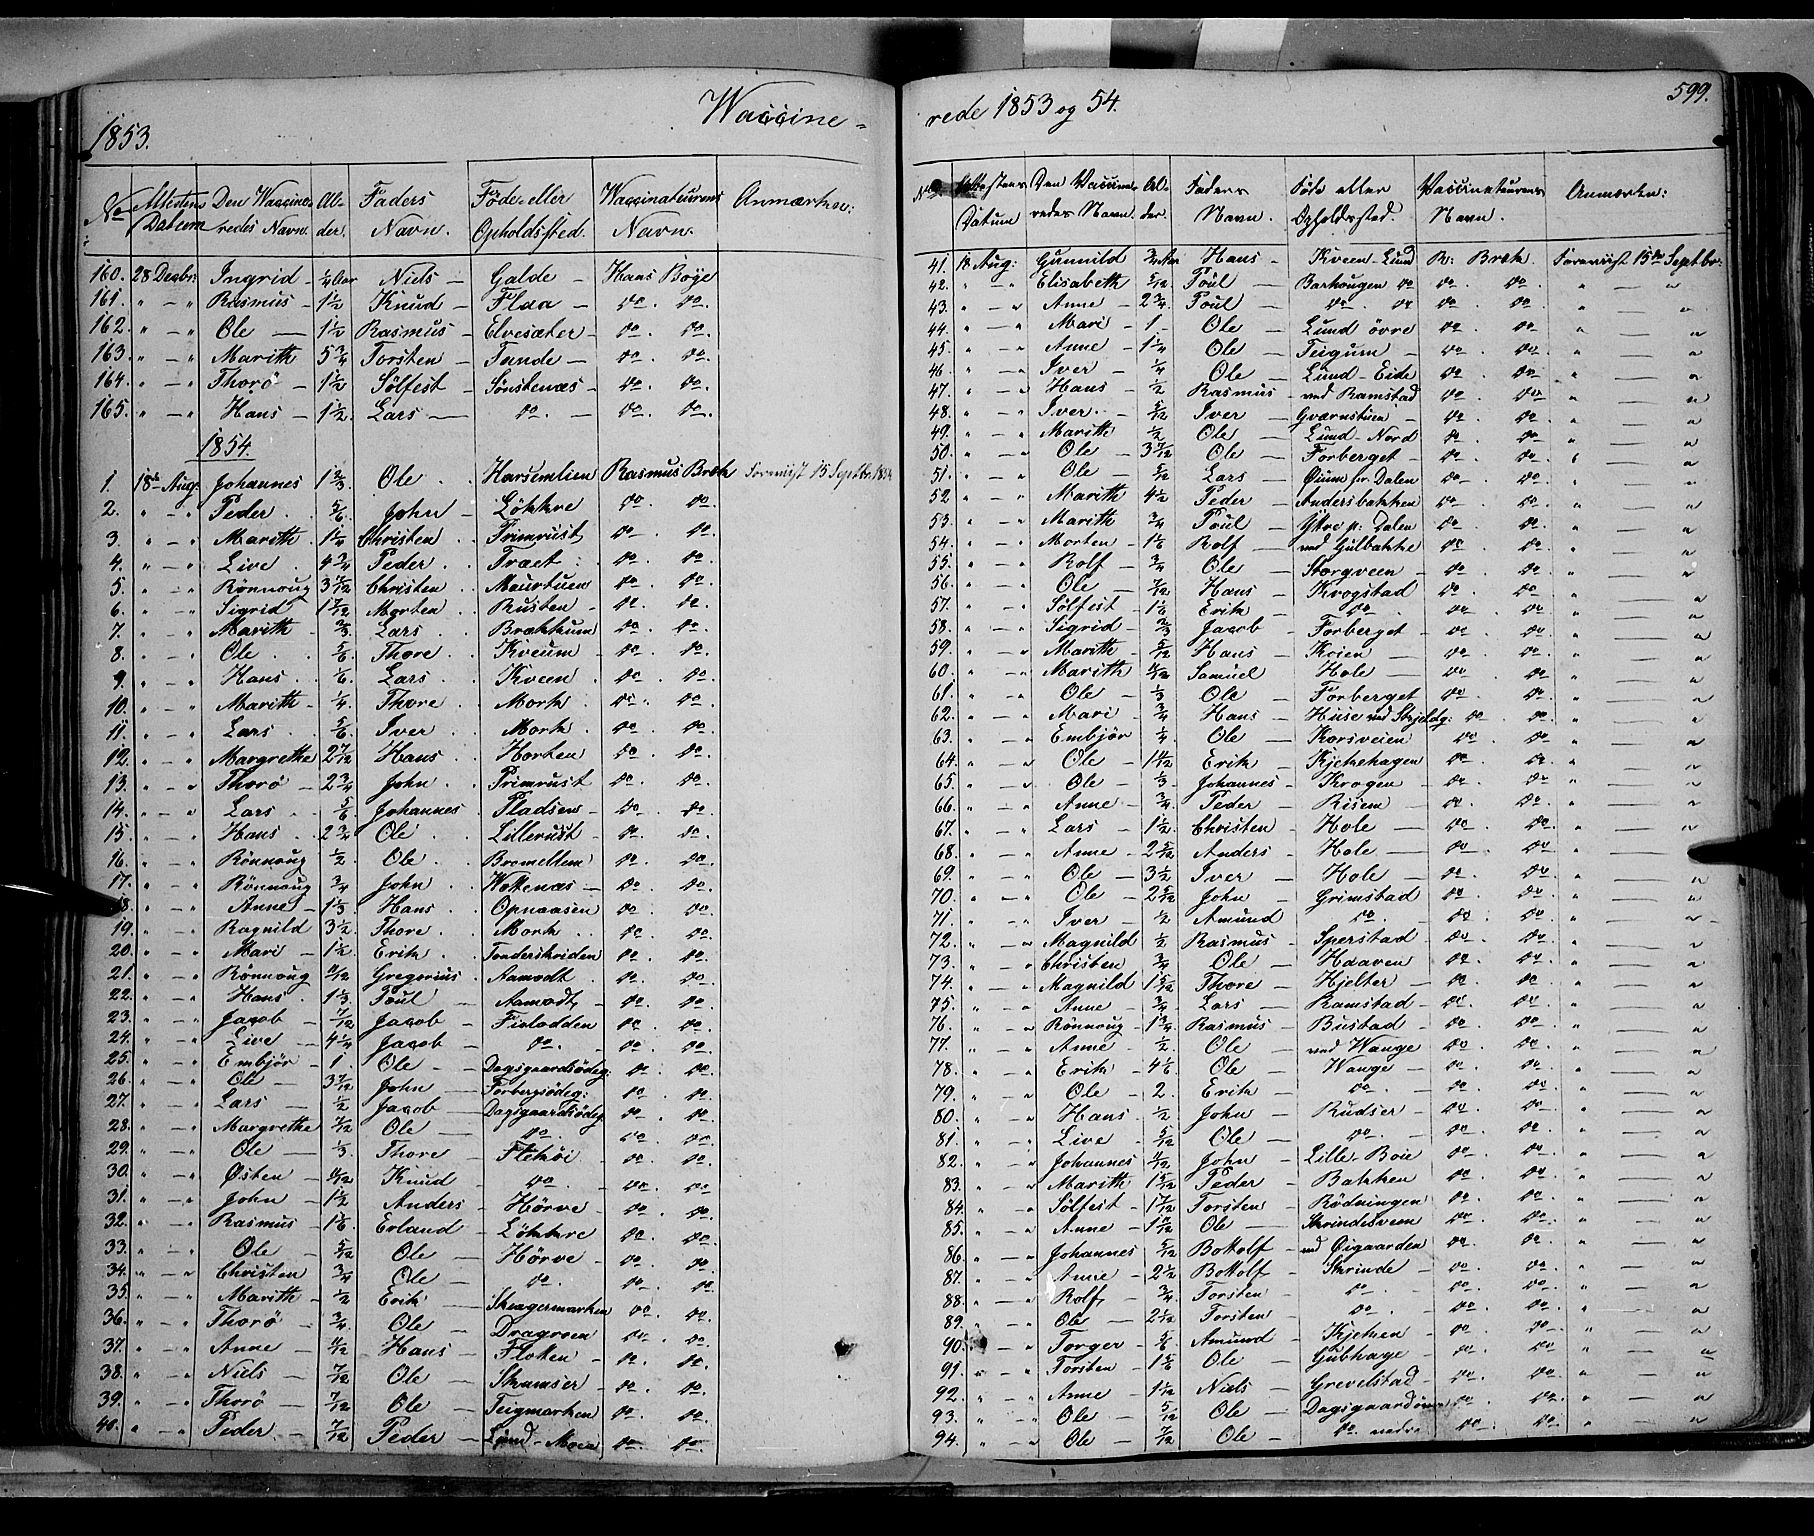 1853.
Waccine-
No Attestens Datum Den Waccineredes Navn. Alder. Faders Navn. Føde- eller Opholdssted. Waccinateurens Navn. Anmærkn:
160. 28 Decbr: Ingrid ¼ Aar Niels Galde Hans Bøye
161. " " Rasmus 1½ Knud Flaa do. do.
162. " " Ole 1½ Rasmus Elvesæter do. do.
163. " " Marith 5¾ Torsten Tande do. do.
164. " " Thorø 1½ Sølfest Sønstenæs do. do.
165. " " Hans 1½ Lars do. do. do.
1854.
1. 18de Aug: Johannes 1⅔ Ole Harsemlien Rasmus Bræk Forevist 15 Septbr. 1854
2. " " Peder ⅚ John Løkkre do. do.
3. " " Marith 1¼ Christen Primrust do. do.
4. " " Live 4¾ Peder Træet do. do.
5. " " Rønnoug 3 7/12 Christen Maurtuen do. do.
6. " " Sigrid 1 7/12 Morten Rusten do. do.
7. " " Marith ⅔ Lars Brækkum do. do.
8. " " Ole ⅚ Thore Kveum do. do.
9. " " Hans ⅙ Lars Kveen do. do.
10. " " Marith ¼ Thore Mork do. do.
11. " " Lars ⅚ Iver Mork do. do.
12. " " Margrethe 2 7/12 Hans Horten do. do.
13. " " Thorø 2¾ John Primrust do. do.
14. " " Lars ⅚ Johannes Pladsen do. do.
15. " " Hans 2¾ Ole Lillerust do. do.
16. " " Rønnoug ½ Ole Bromeltem do. do.
17. " " Rønnoug ¾ John Wollenæs do. do.
18. " " Anne 1⅓ Hans Opnaasen do. do.
19. " " Ragnild 3½ Thore Mork do. do.
20. " " Mari 1½ Erik Tonderskriden do. do.
21. " " Rønnoug 11/12 Gregorius Aamodt do. do.
22. " " Hans 1⅓ Poul Aamodt do. do.
23. " " Jacob 7/12 Jacob Fioladden do. do.
24. " " Live 4¼ Jacob do. do. do.
25. " " Embjør 1 Ole Dagsgaardsødeg: do. do.
26. " " Ole 3 7/12 John Forbergsødeg: do. do.
27. " " Lars ½ Jacob Dagsgaardsødeg do. do.
28. " " Margrethe 7/12 Ole do. do. do.
29. " " Ole ⅓ Thore Flekøi do. do.
30. " " Østen 11/12 Knud do. do. do.
31. " " John 1½ Anders Hørve do. do.
32. " " Rasmus 1⅙ Erland Løkkre do. do.
33. " " Ole 5/12 Ole Hørve do. do.
34. " " Christen ¾ Ole do. do. do.
35. " " Marith ½ Erik Skeagermarken do. do.
36. " " Thorø ¾ Ole Dragvoen do. do.
37. " " Anne 11/12 Hans Floten do. do.
38. " " Niels 7/12 Ole Skamser do. do.
39. " " Thorø 7/12 Ole Teigmarken do. do.
40. " " Peder 7/12 Peder Lund-Moen do. do.
rede 1853 og 54.
599.
No. Attestens Datum Den Vaccineredes Navn. Alder. Faders Navn. Føde eller Opholdssted. Vaccinateurens Navn. Anmærkn:
41. 18 Aug: Gunnild ¾ Aar Hans Kveen-Lund R: Bræk Forevist 15de Septbr:
42. " " Elisabeth 5/12 Poul Barhougen do do. do. " "
43. " " Anne 2¾ Poul do. do do. do. " "
44. " " Mari 1 Ole Lund øvre do. do. " "
45. " " Anne 1¼ Ole Teigum do. do. " "
46. " " Iver ¼ Ole Lund-Eide do. do. " "
47. " " Hans ½ Rasmus ved Ramstad do. do. " "
48. " " Iver 5/12 Iver Qværnstuen do. do. " "
49. " " Marith ½ Ole Lund-Nord do. do. " "
50. " " Ole 3 7/12 Ole Forberget do. do. " "
51. " " Ole 5/12 Lars Øium pr Dalen do. do. " "
52. " " Marith 4½ Peder Andersbakken do. do. " "
53. " " Marith ¾ Poul Ytre p: Dalen do. do. " "
54. " " Morten 1⅙ Rolf ved Gulbakke do. do. " "
55. " " Rolf ¾ Ole Storgveen do. do. " "
56. " " Ole 7/12 Hans Krogstad do. do. " "
57. " " Sølfest 1⅙ Erik do. do. do. " "
58. " " Sigrid ⅔ Jacob Forberget do. do. " "
59. " " Marith 5/12 Hans Koien do. do. " "
60. " " Marith 11/12 Samuel Hole do. do. " "
61. " " Ole ⅓ Ole Forberget do. do. " "
62. " " Mari ¾ Hans Huse ved Skjeldg: do. do. " "
63. " " Embjør ¼ Ole Korsveien do. do. " "
64. " " Ole 1 11/12 Erik Kjekehagen do. do. " "
65. " " Ole ⅓ Johannes Krogen do. do. " "
66. " " Anne ¾ Peder Risem do. do. " "
67. " " Lars 1½ Christen Hole do. do. " "
68. " " Anne 2 5/12 Anders Hole do. do. " "
69. " " Ole 3½ Iver Hole do. do. " "
70. " " Ole 2 5/12 John Grimstad do. do. " "
71. " " Iver ½ Amund do. do. do. " "
72. " " Magnild ½ Rasmus Sperstad do. do. " "
73. " " Christen ¾ Ole Haaven do. do. " "
74. " " Magnild 1 5/12 Thore Hjelter do. do. " "
75. " " Anne ¾ Lars Ramstad do. do. " "
76. " " Rønnoug 1¾ Rasmus Bustad do. do. " "
77. " " Anne ½ Ole ved Wange do. do. " "
78. " " Erik 4⅙ Ole Wange do. do. " "
79. " " Ole 2. Erik do. do. do. " "
80. " " Hans ½ John Rudser do. do. " "
81. " " Live 5/12 Ole do. do. do. " "
82. " " Johannes 11/12 John Lille-Boie do. do. " "
83. " " Marith 1 5/12 Peder Bakken do. do. " "
84. " " Sølfest 1 7/12 Torsten Rødningen do. do. " "
85. " " Anne 1 11/12 Ole Skrindesveen do. do. " "
86. " " Johannes 5/12 Bottolf ved Øigaarden do. do. " "
87. " " Anne 2½ Bottolf Skrinde do. do. " "
88. " " Rolf ¾ Torsten do. do. do. " "
89. " " Ole 2½ Torsten do. do. do. " "
90. " " Torger ⅚ Amund Kjeken do. do. " "
91. " " Torsten 1⅚ Ole Gubhage do. do. " "
92. " " Anne 1 1/12 Niels Grevelstad do. do. " "
93. " " Ole 5/12 Ole Dagsgaard do. do. " "
94. " " Ole 7/12 Ole do. nedre do. do. " "